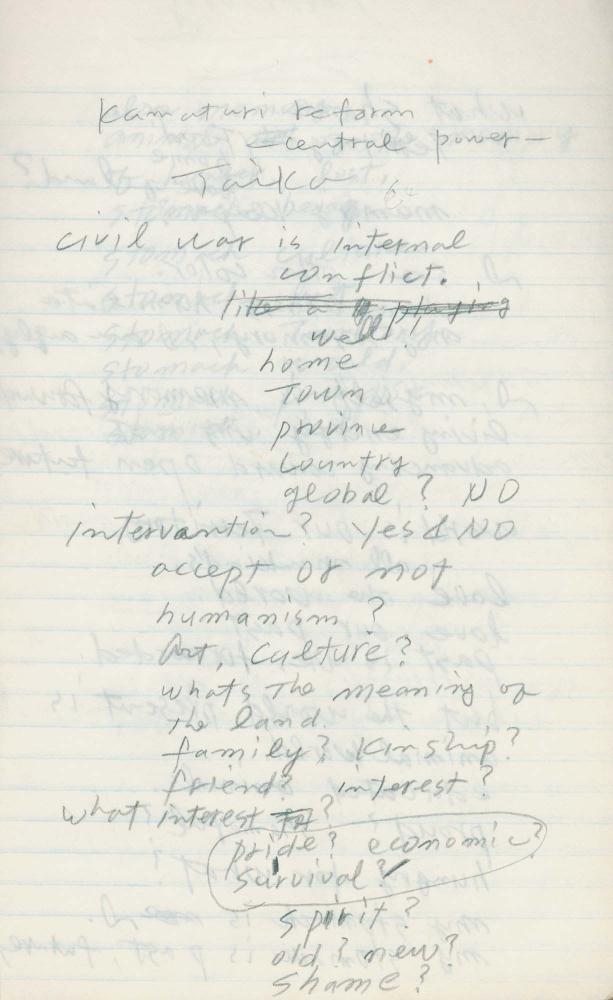 Kamaturi reform
— central power —
Taika
civil war is internal
conflict.
like a playing
well
home
Town
province
country
global? NO
intervantion? Yes & NO
accept or not
humanism?
Art, culture?
whats the meaning of
the land.
family? Kinship?
friend? interest?
what interest ?
pride? economic?
survival?
spirit?
old? new?
shame?